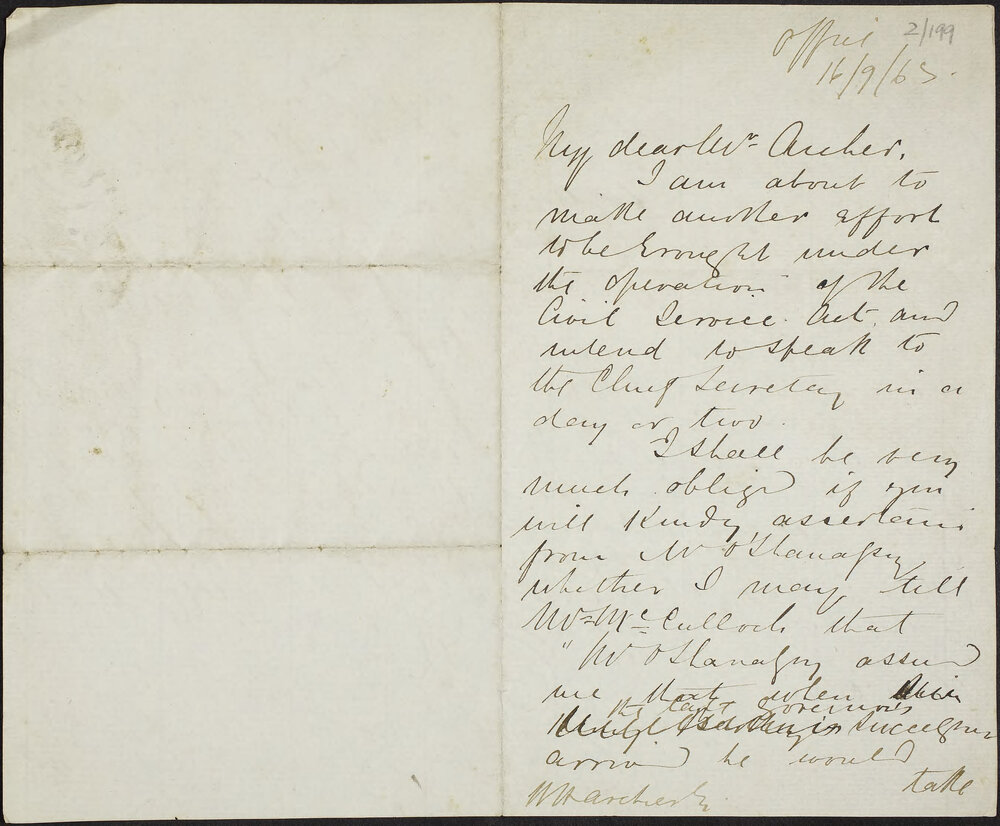 2/199
Office
16/9/63.
My dear Mr Archer,
I am about to
make another effort
to be brought under
the operation of the
Civil Service Act, and
intend to speak to
the Chief Secretary in a
day or two.
I shall be very
much obliged if you
will kindly ascertain
from Mr O'Shanassy
whether I may tell
Mr McCulloch that
"Mr O'Shanassy assured
me that when
the late governors
successor
arrived he would
take
W H Archer Esq.